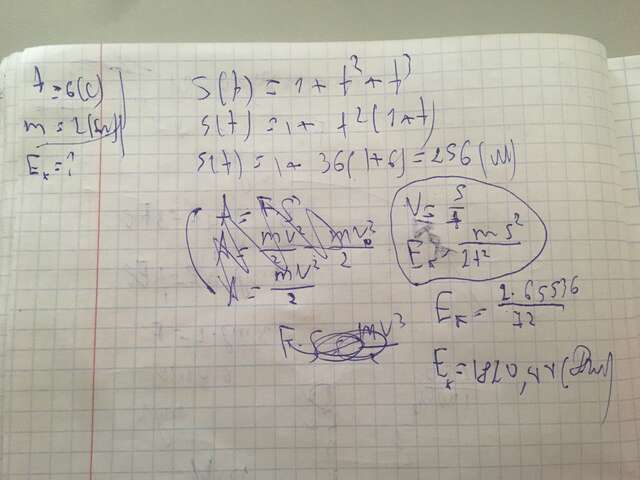 t=6(c)
m=2(кг)
Eк=?
S(t)=1+t²+t³
S(t)=1+t²(1+t)
S(t)=1+36(1+6)=256(м)
A=F·S
A=mv²/2
V=S/t
Eк=mS²/2t²
Eк=2·65536/72
Eк=1820,44(Дж)